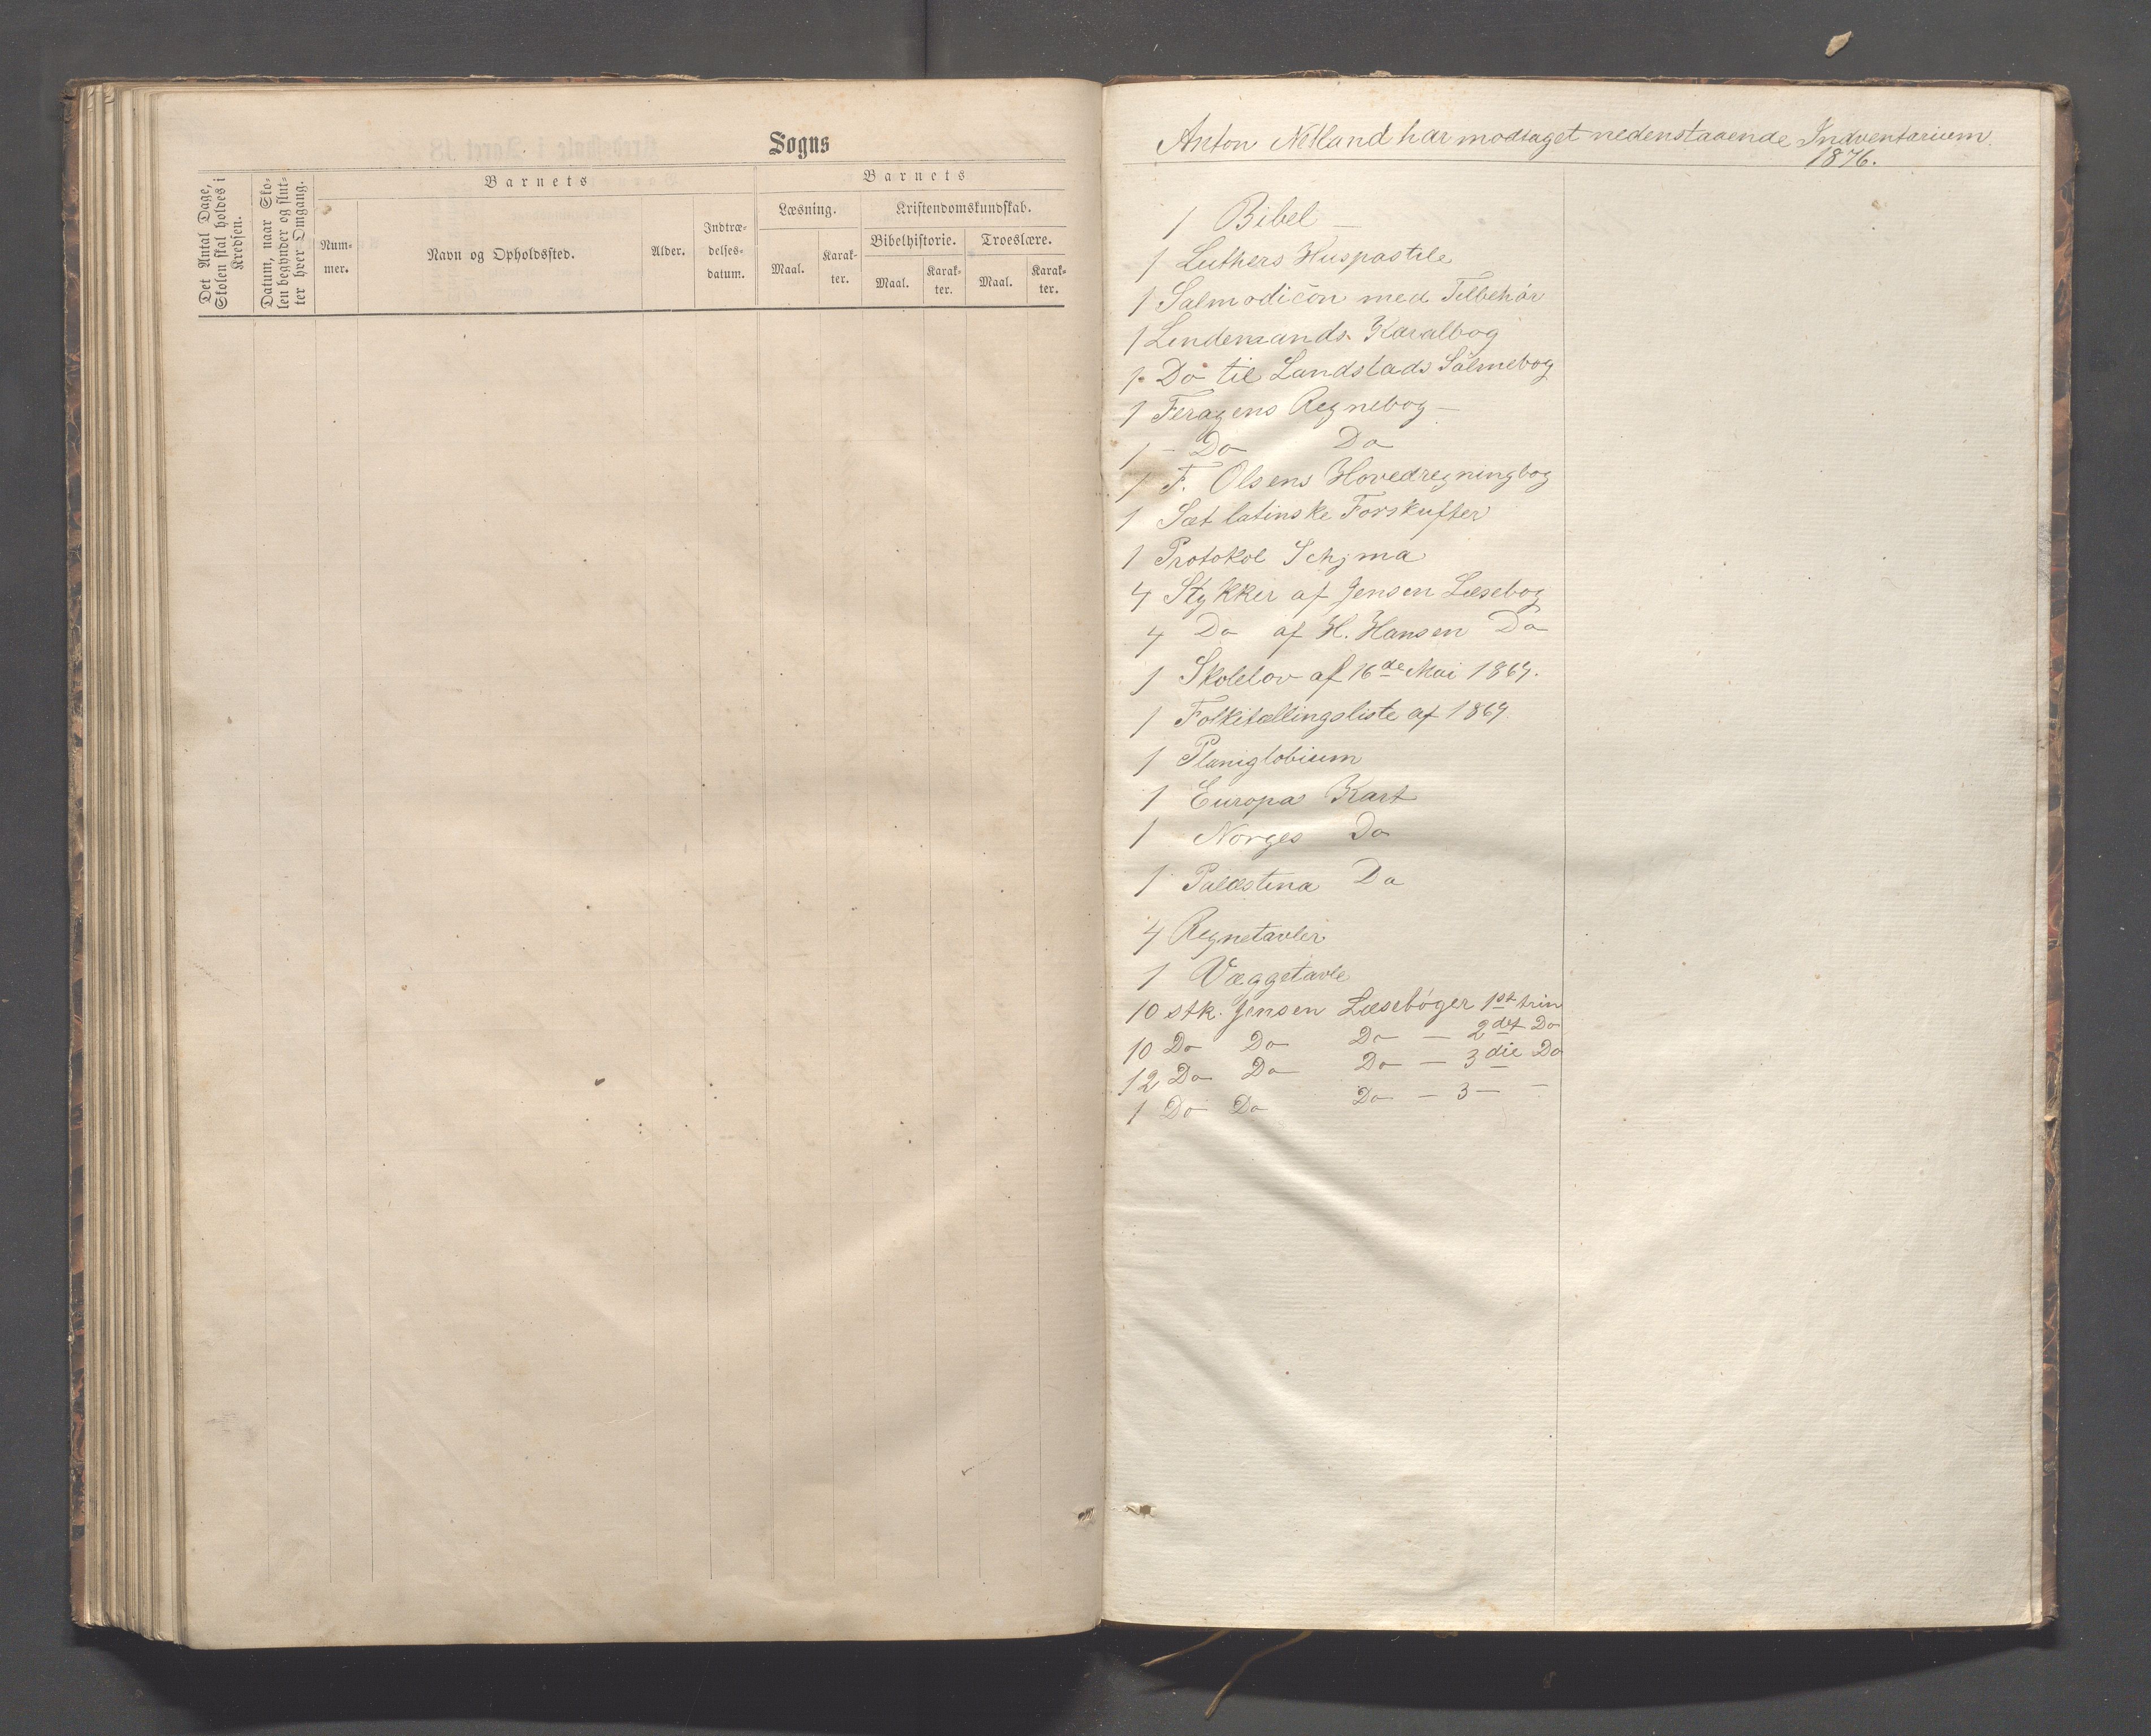 Sogns
Det Antal Dage,
Skolen skal holdes i
Kredsen.
Datum, naar Sko-
len begynder og slut-
ter hver Omgang.
Barnets
Num-
mer.
Navn og Opholdssted.
Alder.
Indtræ-
delses-
datum.
Barnets
Læsning.
Kristendomskundskab.
Maal.
Karak-
ter.
Bibelhistorie.
Troeslære.
Maal.
Karak-
ter.
Maal.
Karak-
ter.
Anton Netland har modtaget nedenstaaende Indventarium
1876.
1 Bibel —
1 Luthers Huspostile
1 Salmodicon med Tilbehör
1 Lindemands Karalbog
1 Do til Landstads Salmebog
1 Feragens Regnebog —
1 - Do Do
1 F. Olsens Hovedregningbog
1 Sæt latinske Forskrifter
1 Protokol Schjma
4 Stykker af Jensen Læsebog
4 Do af H. Hansen Do
1 Skolelov af 16de Mai 1869.
1 Folketællingsliste af 1869
1 Planiglobium
1 Europas Kart
1 Norges Do
1 Palæstina Do
4 Regnetavler
1 Væggetavle
10 stk. Jensen Læsebøger 1st trin
10 Do Do Do — 2det Do
12 Do Do Do — 3die Do
1 Do Do Do — 3 — —